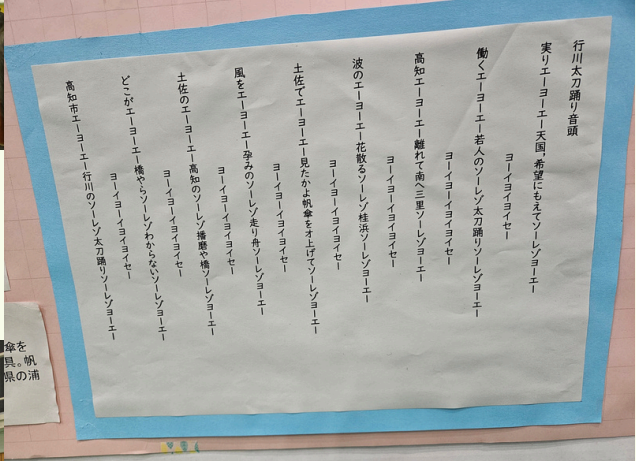 行川太刀踊り音頭
実りエーヨーエー天国、希望にもえてソーレゾヨーエー
ヨーイヨイヨイヨイセー
働くエーヨーエー若人のソーレゾ太刀踊りソーレゾヨーエー
ヨーイヨーイヨイヨイセー
高知エーヨーエー離れて南へ三里ソーレゾヨーエー
ヨーイヨーイヨイヨイセー
波のエーヨーエー花散るソーレゾ桂浜ソーレゾヨーエー
ヨーイヨーイヨイヨイセー
土佐でエーヨーエー見たかよ帆傘をオ上げてソーレゾヨーエー
ヨーイヨーイヨイヨイセー
風をエーヨーエー孕みのソーレゾ走り舟ソーレゾヨーエー
ヨーイヨーイヨイヨイセー
土佐のエーヨーエー高知のソーレゾ播磨や橋ソーレゾヨーエー
ヨーイヨーイヨイヨイセー
どこがエーヨーエー橋やらソーレゾわからないソーレゾヨーエー
ヨーイヨーイヨイヨイセー
高知市エーヨーエー行川のソーレゾ太刀踊りソーレゾヨーエー
傘を
具。帆
県の浦